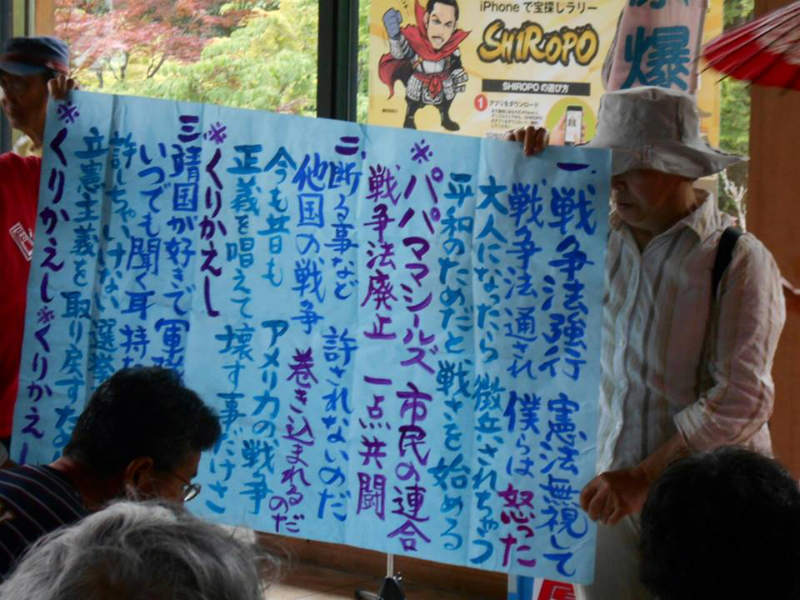 iPhone で宝探しラリー
SHIROPO
SHIROPO の遊び方
1
原爆
一、戦争法強行 憲法無視して
戦争法通され 僕らは 怒った
大人になったら 徴兵されちゃう
平和のためだと 戦さを 始める
※パパママシールズ 市民の連合
戦争法廃止 一点共闘
二、断る事など 許されないのだ
他国の戦争 巻き込まれるのだ
今も昔も アメリカの戦争
正義を唱えて 壊す事だけさ
※くりかえし
三、靖国が好きで 軍
いつでも聞く耳 持
許しちゃいけない 選挙
立憲主義を取り戻すた
※くりかえし※くりかえし